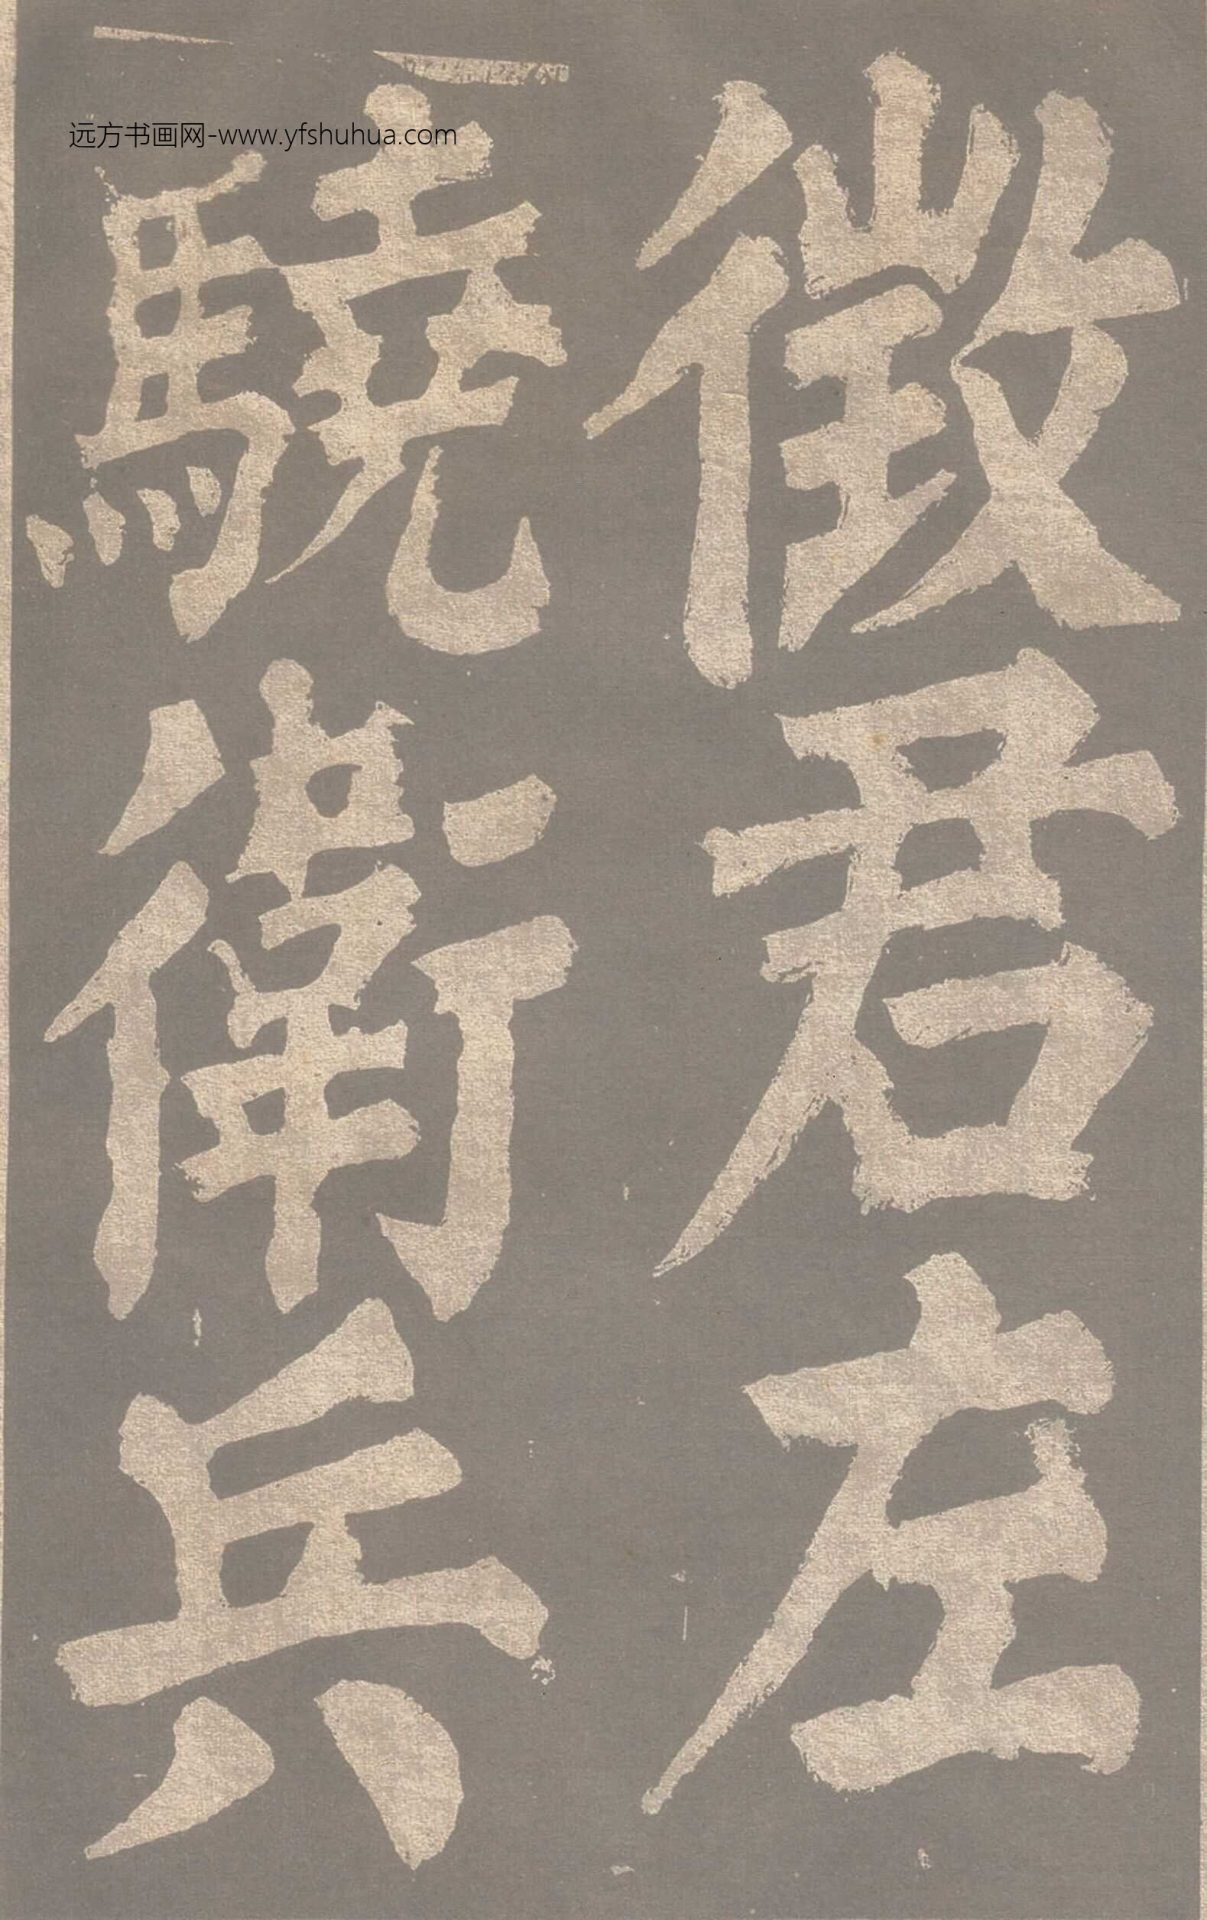 徵君左
驍衛兵
远方书画网-www.yfshuhua.com